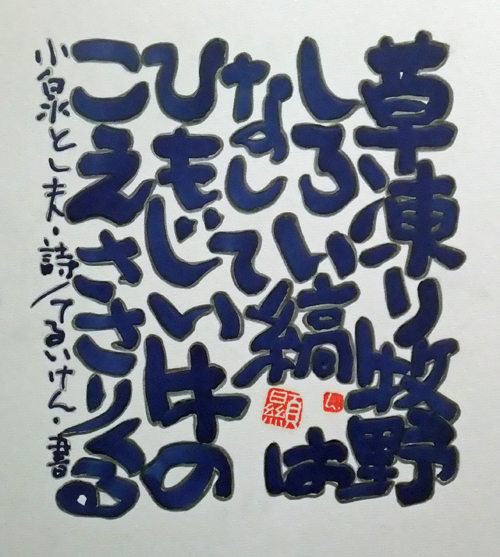 草凍り牧野は
しろい縞
なして
ひもじい牛の
こえささりくる
小泉とし夫・詩/てるいけん・書